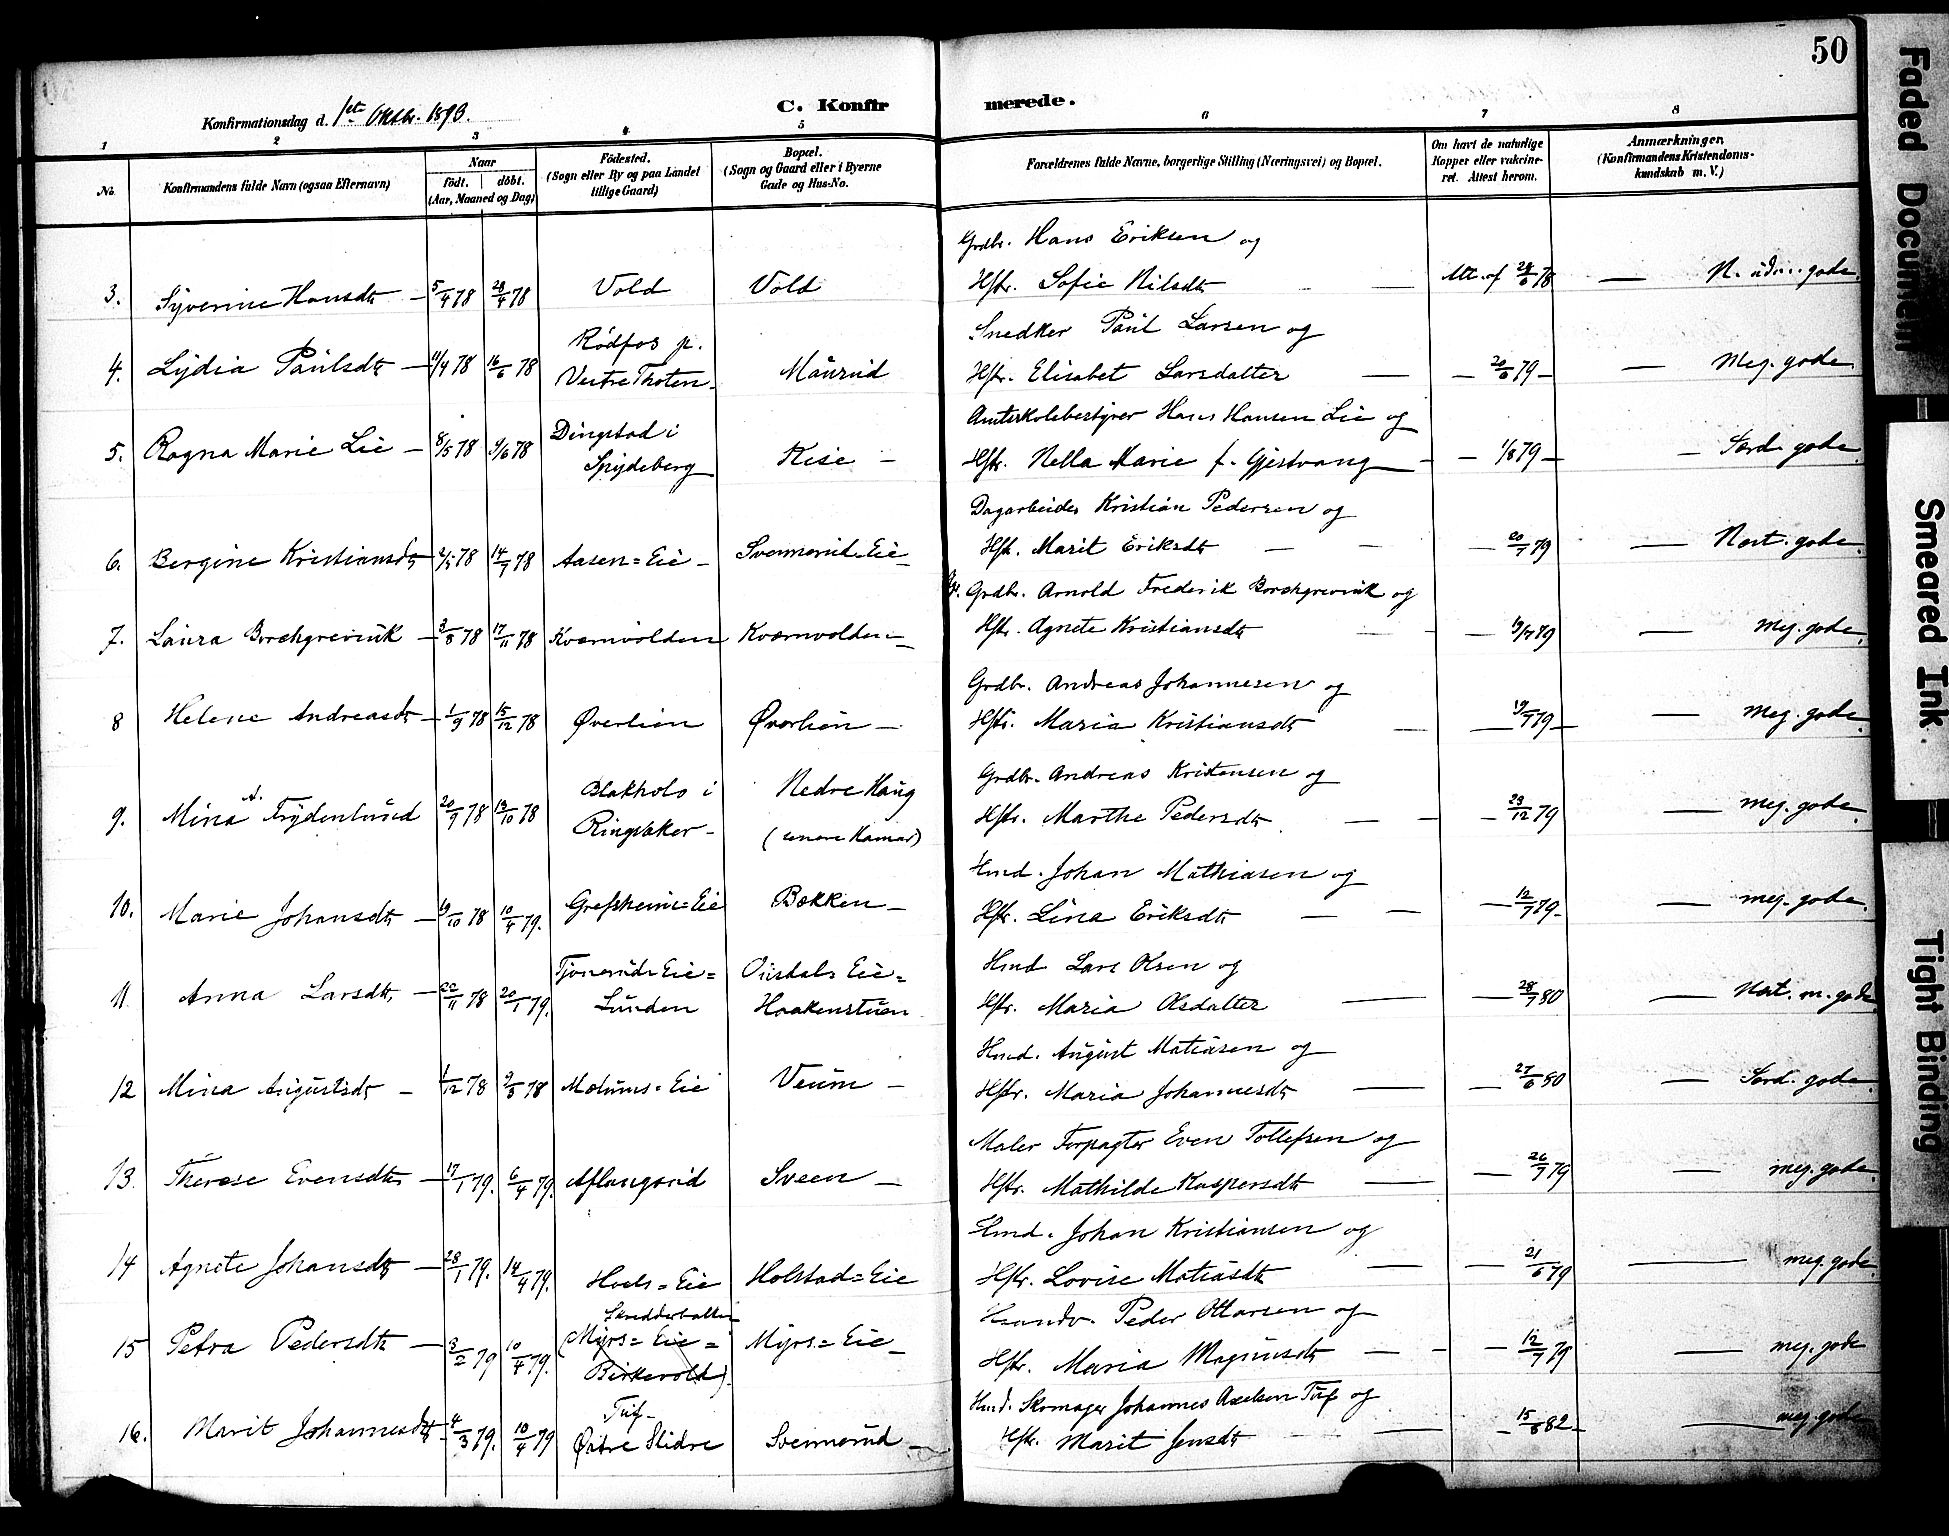 50
Konfirmationsdag d. 1ste Oktbr. 1893.
C. Konfirmerede.
1 2 3 4 5 6 7 8
No.
Konfirmandens fulde Navn (ogsaa Efternavn)
Naar
födt. döbt.
(Aar, Maaned og Dag)
Födested.
(Sogn eller By og paa Landet
tillige Gaard)
Bopæl.
(Sogn og Gaard eller i Byerne
Gade og Hus-No.
Forældrenes fulde Navne, borgerlige Stilling (Næringsvei) og Bopæl.
Om havt de naturlige
Kopper eller vakcine-
ret. Attest herom.
Anmærkninger
(Konfirmandens Kristendoms-
kundskab m. V.)
Grdbr. Hans Eriksen og
3. Syverine Hansdtr 5/4 78 28/4 78 Vold Vold Hstr. Sofie Nilsdtr Att. af 78 gode
Rødfos p. Snedker Paul Larsen og
4. Lydia Paulsdtr 11/4 78 16/6 78 Vestre Thoten Maurud Hstr. Elisabet Larsdatter 20/6 79 Meg. gode
Dingstad i Amtskolebestyrer Hans Hansen Lie og
5. Ragna Marie Lie 8/5 78 9/6 78 Spydeberg Kise Hstr. Nella Marie f. Gjestvang 1/8 79 Særd. gode
Dagarbeider Kristian Pedersen og
6. Bergine Kristiansdtr 2/5 78 14/7 78 Aasen=Eie Svennerud=Eie Hstr. Marit Eriksdtr 20/7 79 Nost. gode
Grdbr. Arnold Frederik Borchgrevink og
7. Laura Borchgrevink 3/8 78 17/11 78 Kvernvolden Kvernvolden Hstr. Agnete Kristiansdtr 19/7 79 Meg. gode
Grdbr. Andreas Johannesen og
8 Helene Andreasdtr 1/9 78 15/12 78 Øverlien Øverlien Hstr. Maria Kristiansdtr 19/7 79 Meg. gode
Blakhols i Nedre Haug Grdbr. Andreas Kristensen og
9. Mina A. Frydenlund 20/9 78 13/10 78 Ringsaker (senere Hamar) Hstr. Marthe Pedersdtr 23/12 79 meg. gode
Hmd. Johan Mathiasen og
10. Marie Johansdtr 19/10 78 10/4 79. Grefsheim=Eie Bækken Hstr. Lina Eriksdtr 12/7 79 meg. gode
Tjonerud=Eie= Eie= Hmd Lars Olsen og
11. Anna Larsdtr 22/11 78 20/1 79. Lunden Haakenstuen Hstr. Maria Olsdatter 28/7 80 Nost. m. gode
Hmd. August Matiasen og
12 Mina Augustsdtr 1/12 78 78 Mælums=Eie Veum Hstr. Maria Johannesdtr 27/6 80 Særd. gode
Maler Forpagter Even Tollefsen og
13. Therese Evensdtr 17/1 79. 6/4 79. Aflangsrud Sveen Hstr. Mathilde Kaspersdtr 26/7 79 meg. gode
Hmd. Johan Kristiansen og
14 Agnete Johansdtr 28/1 79. 14/4 79. Hoels=Eie Holstad=Eie Hstr. Lovise Matiasdtr 21/6 79 meg. gode
Skrædderbakken Peder Ottarsen og
15 Petra Pedersdtr 3/2 79 10/4 79. (Myrs=Eie= Myrs=Eie Hstr. Maria Magnusdtr 12/7 79 meg. gode
Birkevold).
Tuf Hmd. Skomager Johannes Axelsen Tuf og
16. Marit Johannesdtr 4/3 79. 10/4 79 Østre Slidre Svennerud Hstr. Marit Jensdtr 15/6 82 meg. gode
Faded Document
Smeared Ink.
Tight Binding